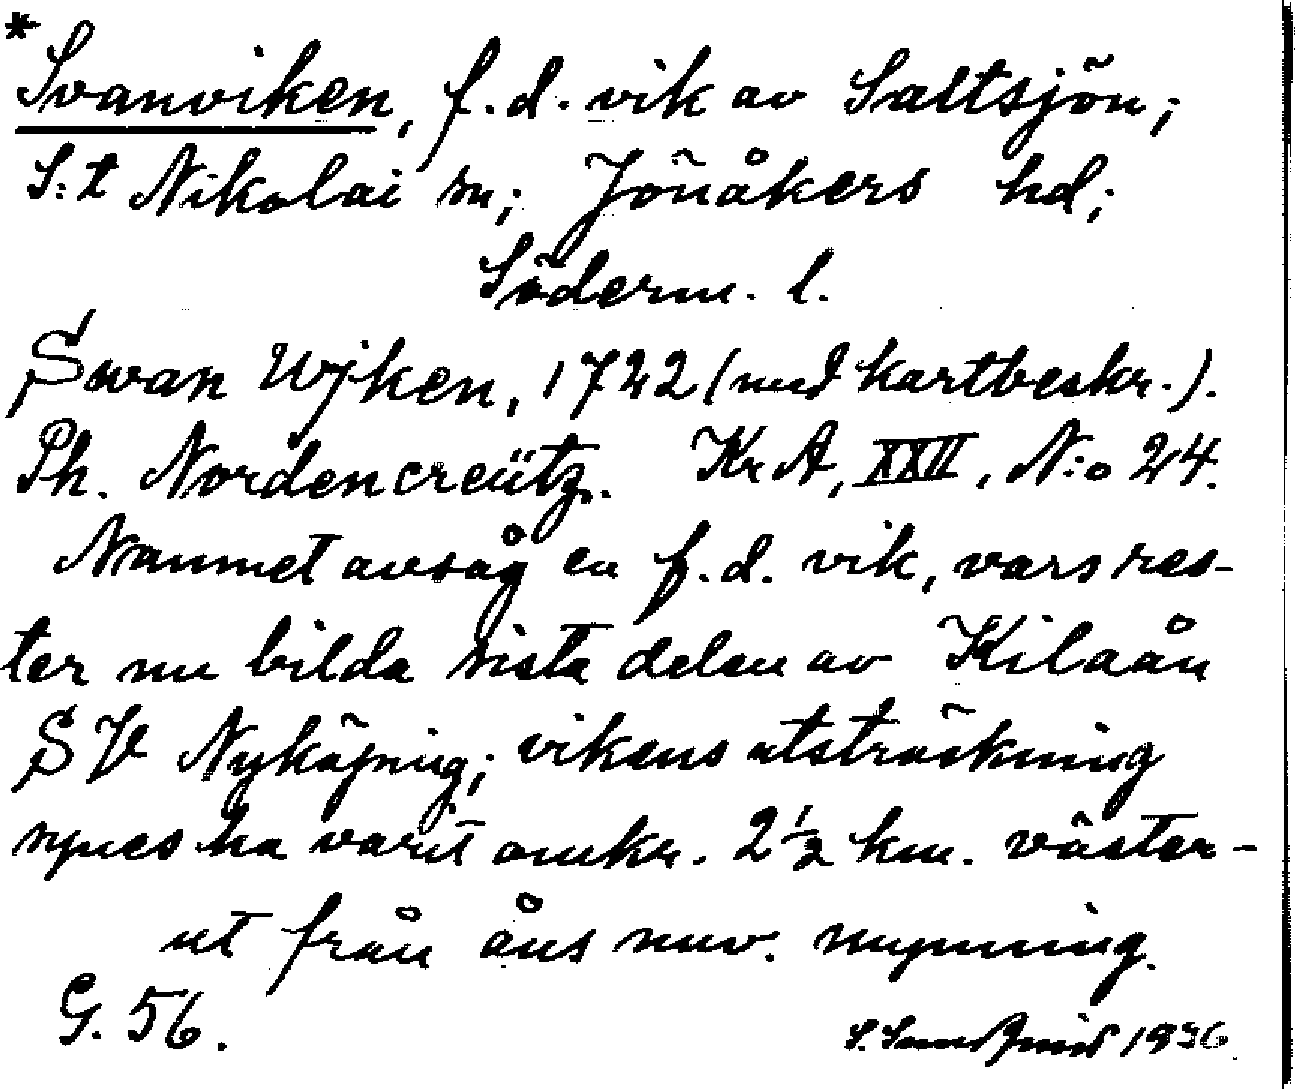 *Svanviken, f.d. vik av Saltsjön;
S:t Nikolai sn; Jönåkers hd;
Söderm. l.
Swan Wijken, 1722 (med kartbeskr.).
Ph. Nordencreütz. Kr A, XXII, N:o 24.
Namnet avsåg en f.d. vik, vars res-
ter nu bilda sista delen av Kilaån
SV Nyköping; vikens utsträckning
synes ha varit omkr. 2 1/2 km. väster-
ut från åns nuv. mynning.
G. 56.
S. 1936